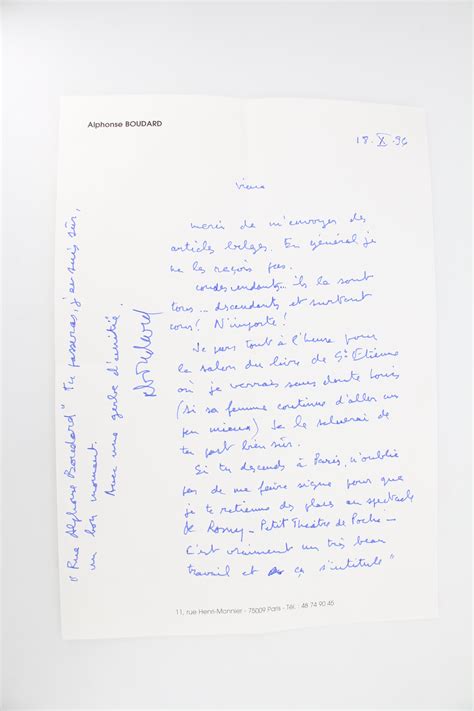 Alphonse BOUDARD
18. X. 96
Vieux
merci de m'envoyer des
articles belges. En général je
ne les reçois pas.
condescendants... ils le sont
tous... descendants et surtout
cons! N'importe!
Je pars tout à l'heure pour
le salon du livre de St Etienne
où je verrai sans doute Louis
(si sa femme continue d'aller un
peu mieux) Je le saluerai de
ta part bien sûr.
Si tu descends à Paris, n'oublie
pas de me faire signe pour que
je te retienne des places au spectacle
de Romy - Petit Théâtre de Poche -
C'est vraiment un très beau
travail et ça s'intitule"
"Rue Alphonse Boudard" Tu passeras, j'en suis sûr,
un bon moment.
Avec une gerbe d'amitié.
Boudard
11, rue Henri-Monnier - 75009 Paris - Tél. : 48 74 90 45